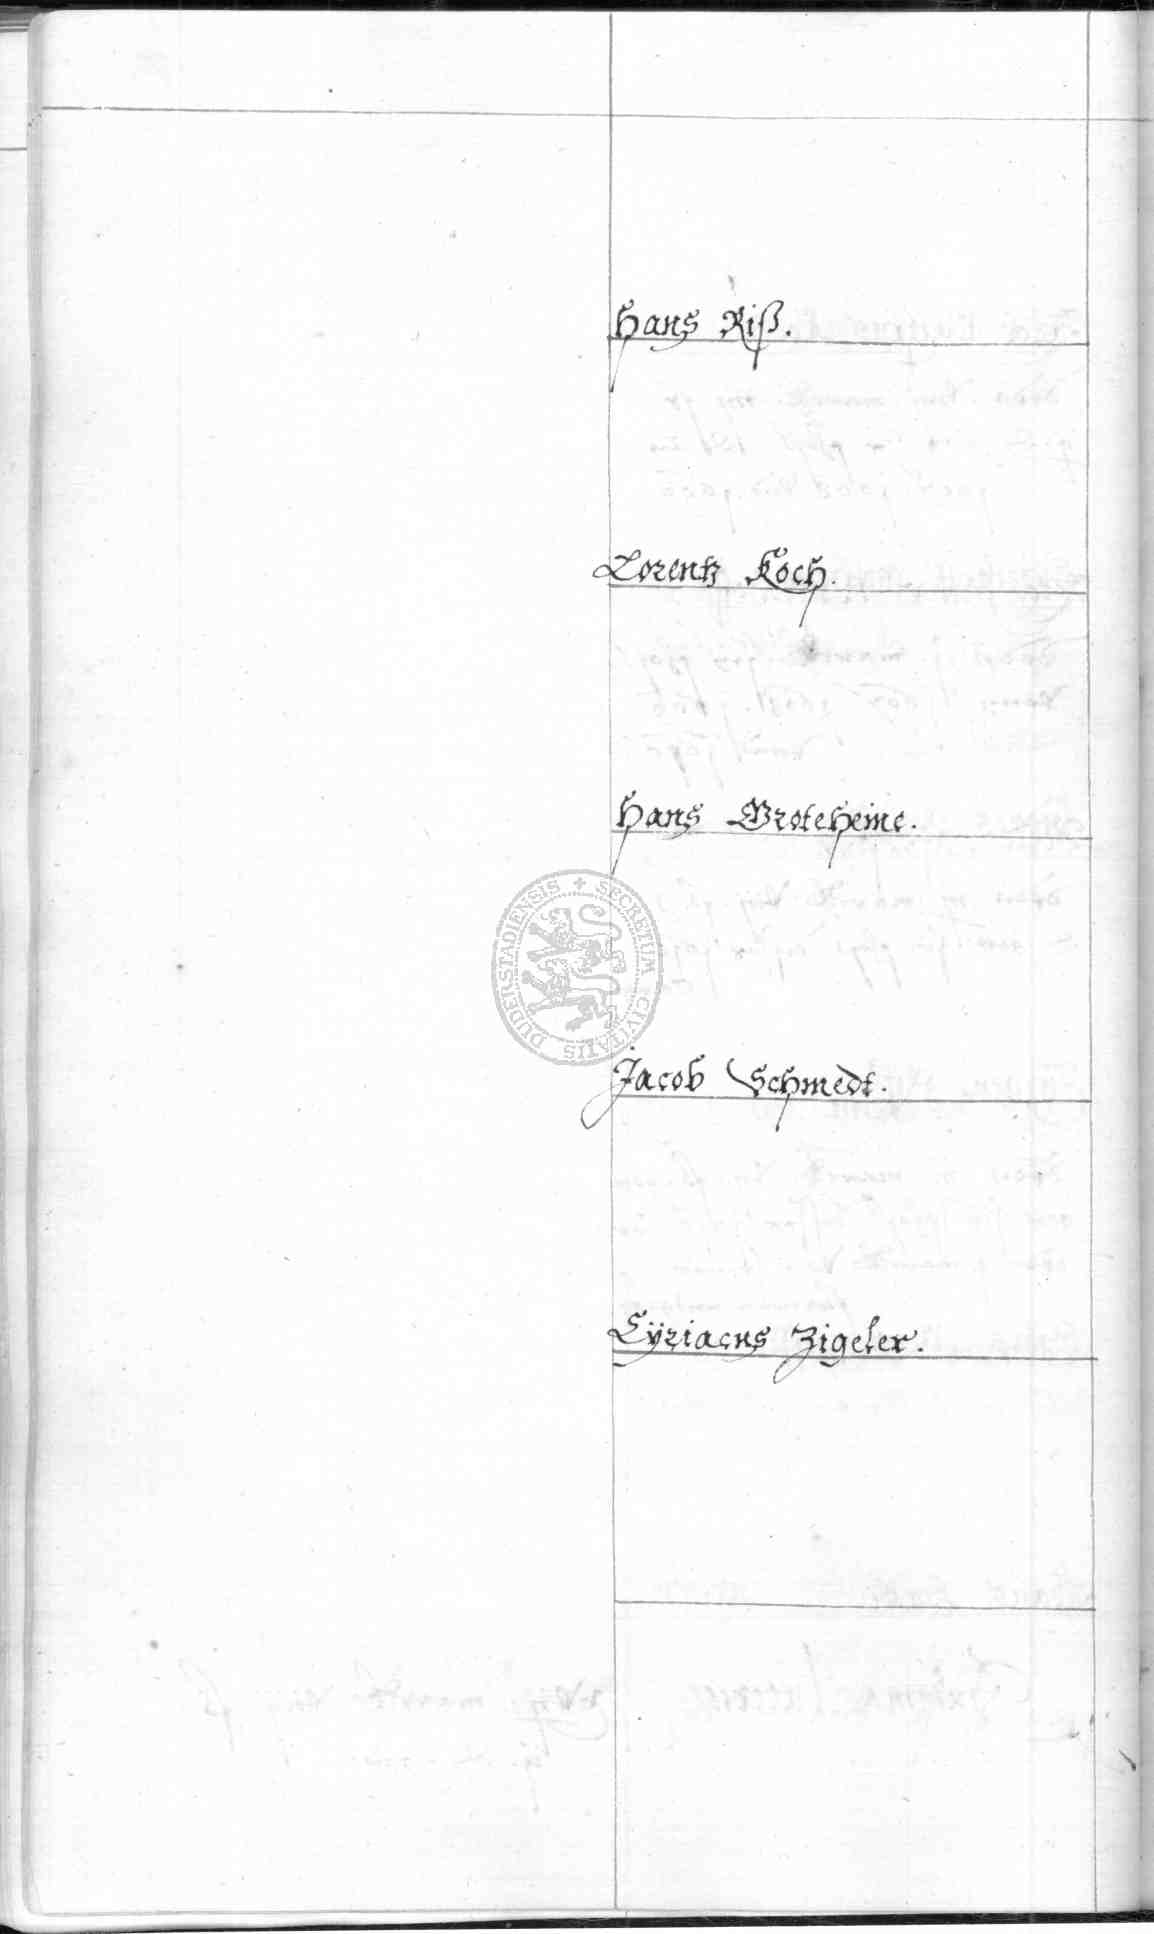 Hans Riß.
Lorentz Koch.
Hans Groteheine.
SECRETUM CIVITATIS DUDERSTADIENSIS
Jacob Schmedt.
Cÿriacus Zigeler.